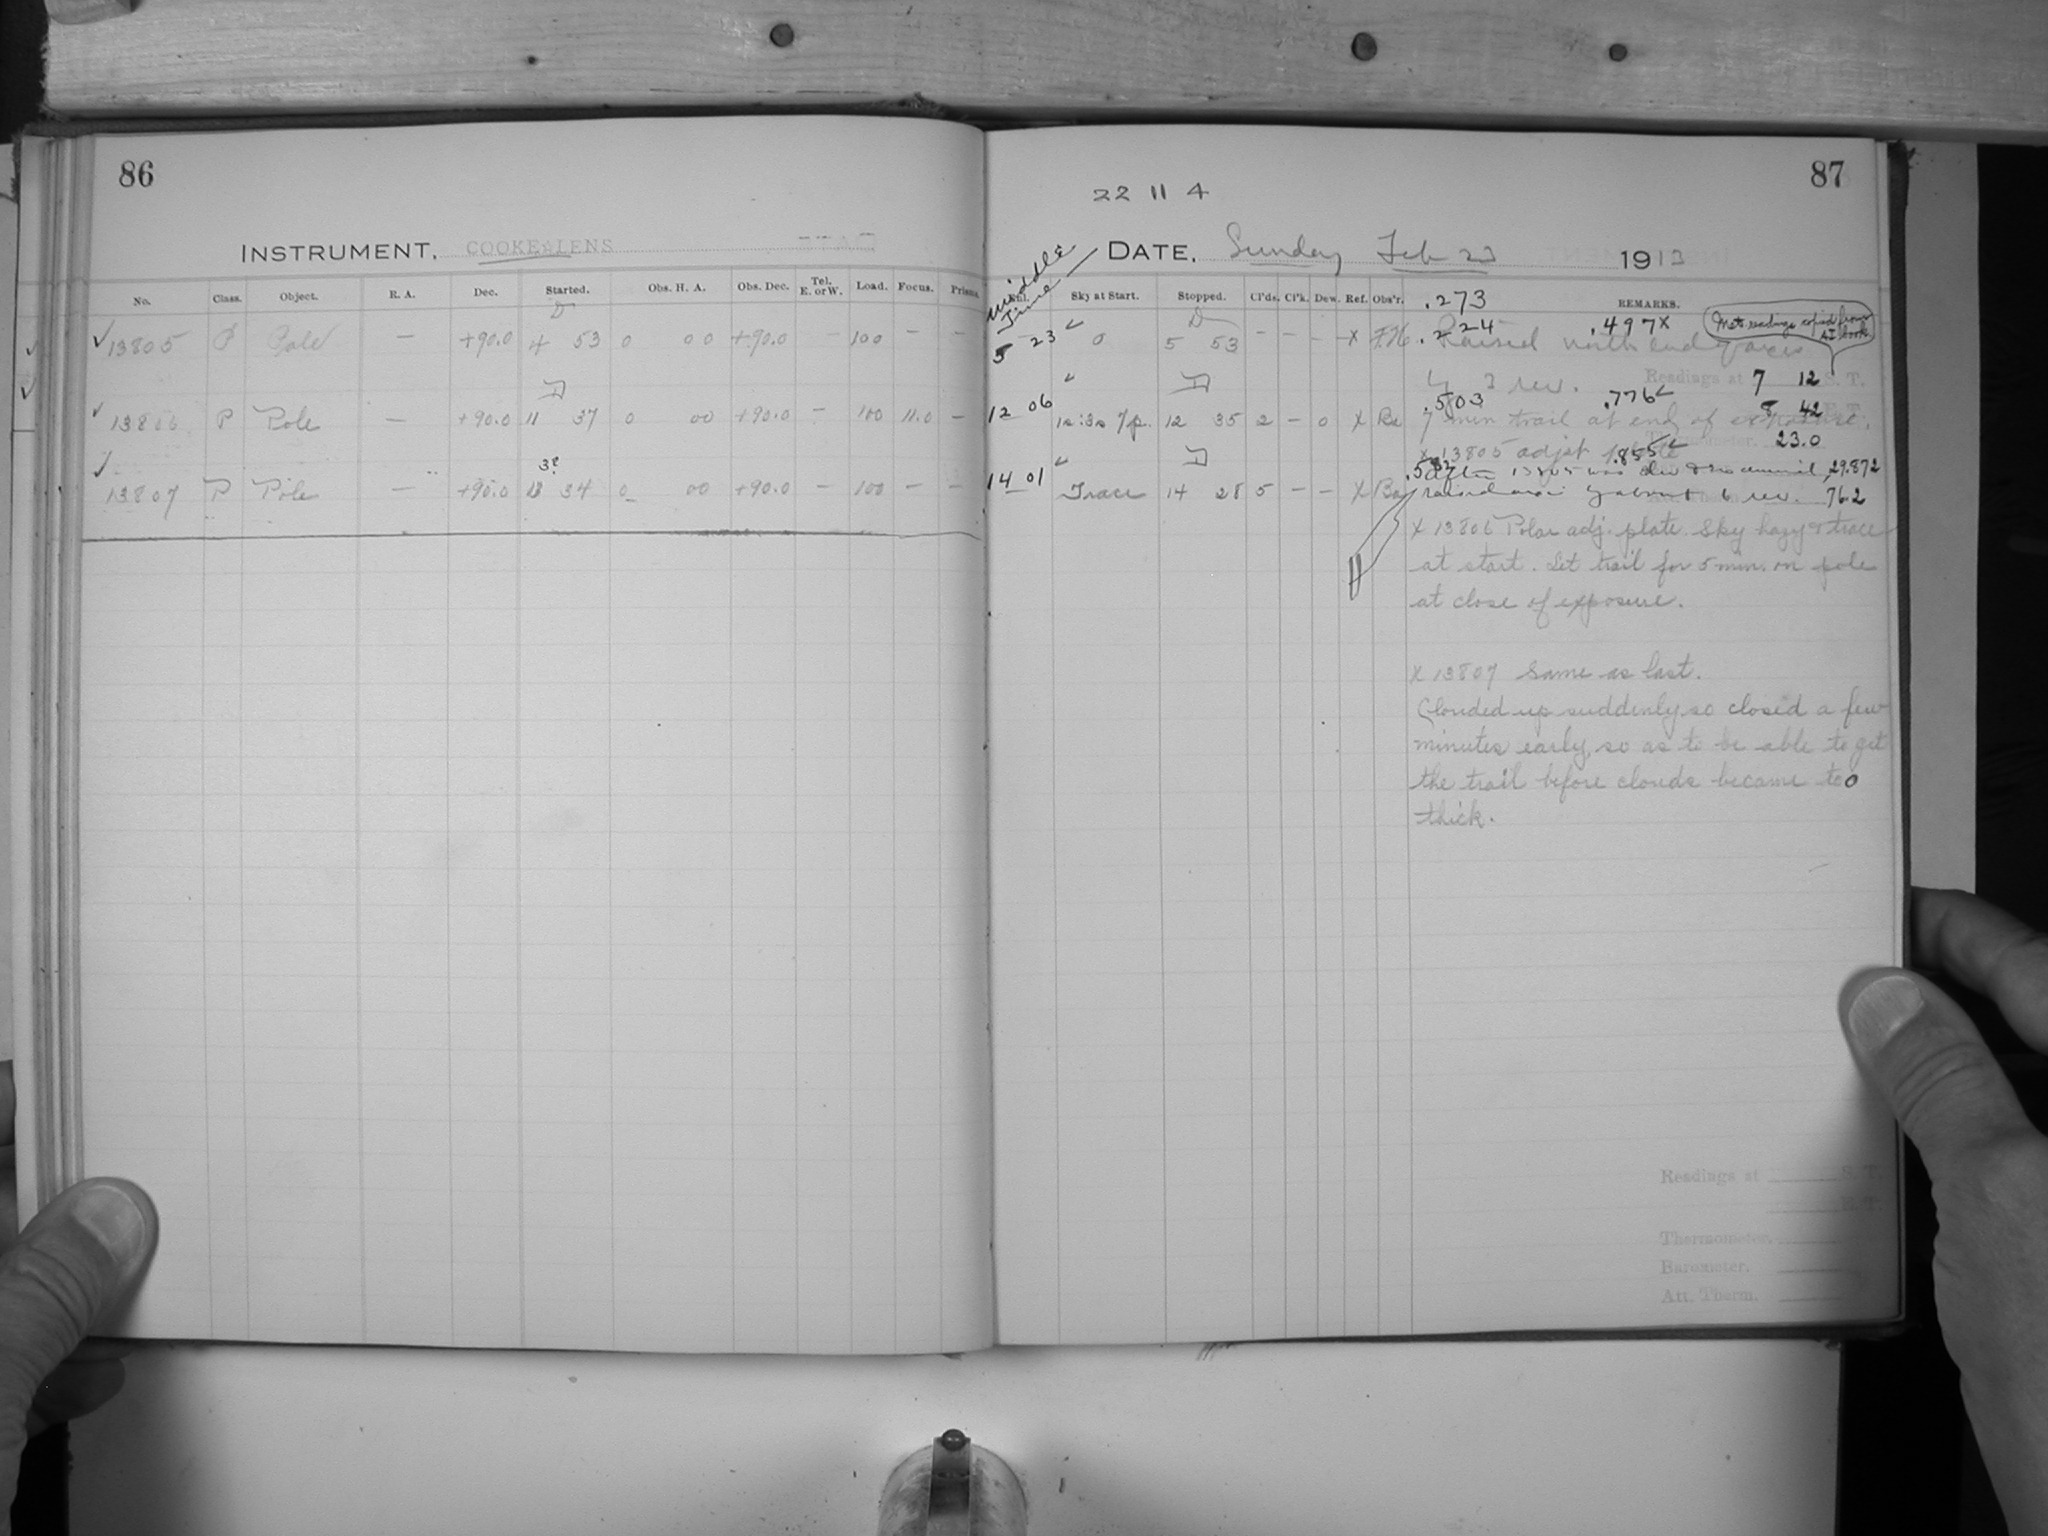 86
INSTRUMENT, COOKE LENS
No. Class. Object. R. A. Dec. Started. Obs. H. A. Obs. Dec. Tel. E. or W. Load. Focus. Prisms.
D
✓ 13805 P Pole — +90.0 4 53 0 00 +90.0 — 100 — —
D
✓ 13806 P Pole — +90.0 11 37 0 00 +90.0 — 100 11.0 —
3?
✓ 13807 P Pole — +90.0 13 34 0 00 +90.0 — 100 — —
87
22 11 4
DATE, Sunday Feb 23 1913
Middle Time
Sky at Start. Stopped. Cl'ds. Cl'k. Dew. Ref. Obs'r. REMARKS.
.273
.224 .497x
Met. readings copied from AI book
5 23 0 D 5 53 — — — x F.H. Raised north end of axis
by 3 rev.
Readings at 7 12 S. T.
.503 .776
8 42 E. T.
12 06 12:30 7p. D 12 35 2 — 0 X Ba 7 min trail at end of exposure.
Thermometer. 23.0
x 13805 adjst plate
.855
After 13805 was 29.872
14 01 Trace D 14 28 5 — — X Ba raised axis by about 6 rev. 76.2
X 13806 Polar adj. plate. Sky hazy & trace
at start. Let trail for 5 min. on pole
at close of exposure.
X 13807 Same as last.
Clouded up suddenly, so closed a few
minutes early, so as to be able to get
the trail before clouds became too
thick.
Readings at S. T.
E. T.
Thermometer.
Barometer.
Att. Therm.